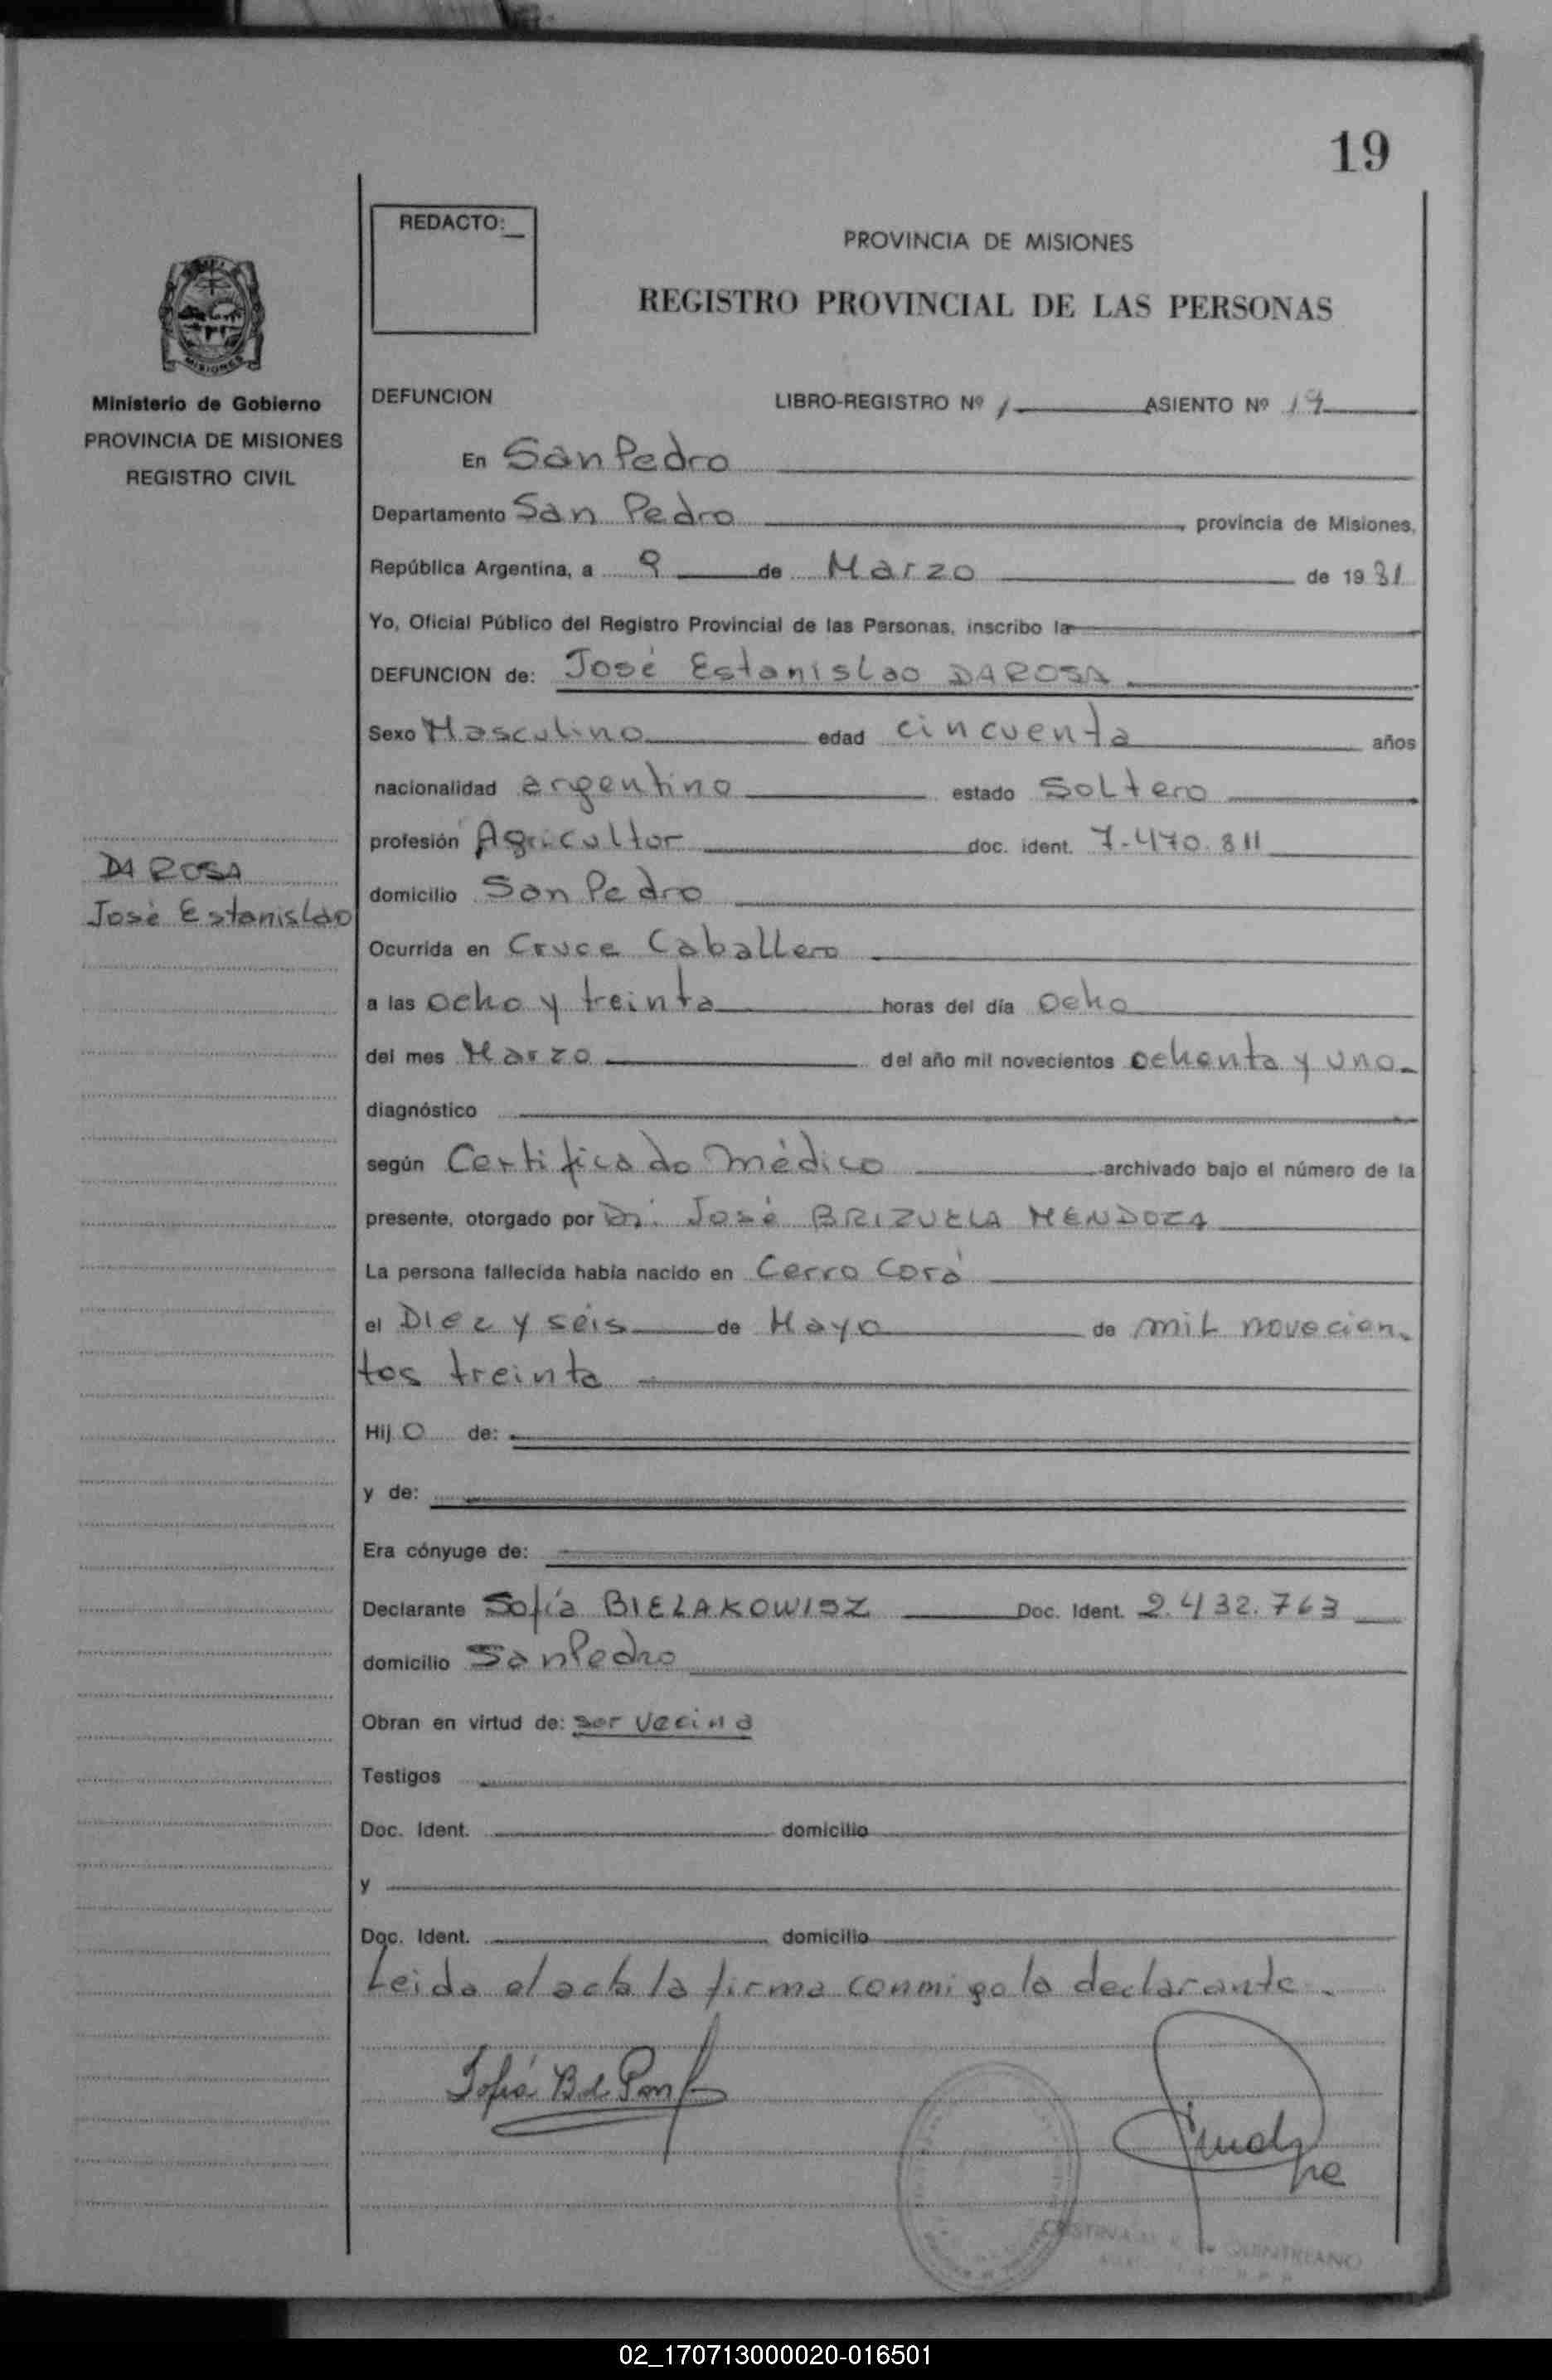 19
REDACTO:
PROVINCIA DE MISIONES
REGISTRO PROVINCIAL DE LAS PERSONAS
MISIONES
Ministerio de Gobierno
PROVINCIA DE MISIONES
REGISTRO CIVIL
DEFUNCION LIBRO-REGISTRO Nº 1 ASIENTO Nº 19
En San Pedro
Departamento San Pedro, provincia de Misiones,
República Argentina, a 9 de Marzo de 1981
Yo, Oficial Público del Registro Provincial de las Personas, inscribo la
DEFUNCION de: José Estanislao DAROSA
Sexo Masculino edad cincuenta años
nacionalidad argentino estado Soltero
profesión Agricultor doc. ident. 7.470.811
DA ROSA
José Estanislao
domicilio San Pedro
Ocurrida en Cruce Caballero
a las ocho y treinta horas del día ocho
del mes Marzo del año mil novecientos ochenta y uno
diagnóstico
según Certificado médico archivado bajo el número de la
presente, otorgado por Dr. José BRIZUELA MENDOZA
La persona fallecida había nacido en Cerro Corá
el Diez y séis de Mayo de mil novecien
tos treinta
Hijo de:
y de:
Era cónyuge de:
Declarante Sofía BIELAKOWISZ Doc. Ident. 2.432.763
domicilio San Pedro
Obran en virtud de: ser vecina
Testigos
Doc. Ident. domicilio
y
Doc. Ident. domicilio
Leida el acta la firma conmigo la declarante.
Sofía B. de
QUINTELIANO
02_170713000020-016501